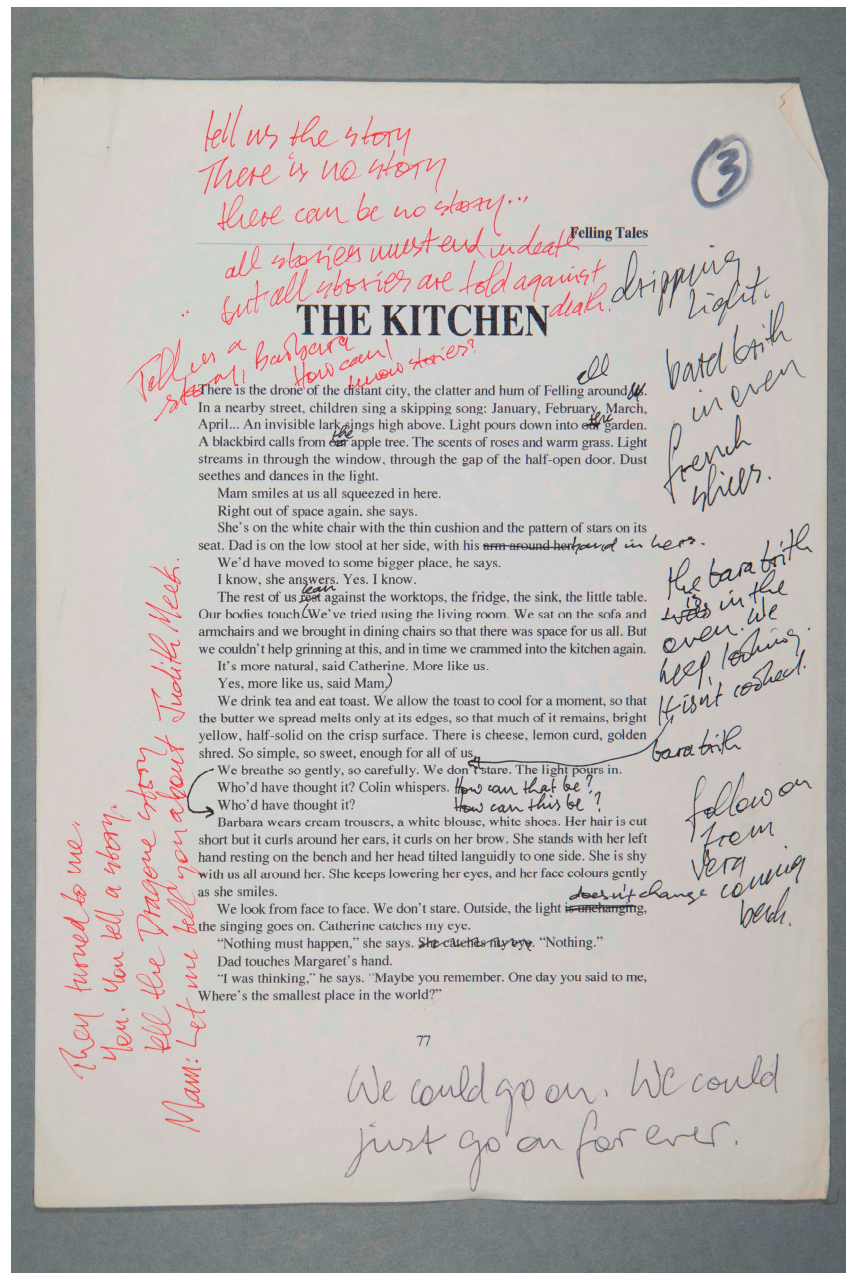 tell us the story
There is no story
there can be no story...
3
Felling Tales
all stories must end in death
but all stories are told against
death.
dripping
light.
THE KITCHEN
Tell us a
story, Barbara
How can I
know stories?
all
There is the drone of the distant city, the clatter and hum of Felling around us.
In a nearby street, children sing a skipping song: January, February, March,
the
April... An invisible lark sings high above. Light pours down into our garden.
the
A blackbird calls from our apple tree. The scents of roses and warm grass. Light
streams in through the window, through the gap of the half-open door. Dust
seethes and dances in the light.
Mam smiles at us all squeezed in here.
Right out of space again, she says.
She's on the white chair with the thin cushion and the pattern of stars on its
seat. Dad is on the low stool at her side, with his arm around her hand in hers.
We'd have moved to some bigger place, he says.
I know, she answers. Yes. I know.
lean
The rest of us rest against the worktops, the fridge, the sink, the little table.
Our bodies touch. (We've tried using the living room. We sat on the sofa and
armchairs and we brought in dining chairs so that there was space for us all. But
we couldn't help grinning at this, and in time we crammed into the kitchen again.
It's more natural, said Catherine. More like us.
Yes, more like us, said Mam.)
We drink tea and eat toast. We allow the toast to cool for a moment, so that
the butter we spread melts only at its edges, so that much of it remains, bright
yellow, half-solid on the crisp surface. There is cheese, lemon curd, golden
shred. So simple, so sweet, enough for all of us.
We breathe so gently, so carefully. We don't stare. The light pours in.
Who'd have thought it? Colin whispers. How can that be?
Who'd have thought it? How can this be?
Barbara wears cream trousers, a white blouse, white shoes. Her hair is cut
short but it curls around her ears, it curls on her brow. She stands with her left
hand resting on the bench and her head tilted languidly to one side. She is shy
with us all around her. She keeps lowering her eyes, and her face colours gently
as she smiles.
doesn't change
We look from face to face. We don't stare. Outside, the light is unchanging,
the singing goes on. Catherine catches my eye.
"Nothing must happen," she says. She catches my eye. "Nothing."
Dad touches Margaret's hand.
"I was thinking," he says. "Maybe you remember. One day you said to me,
Where's the smallest place in the world?"
77
bara brith
in oven
french
slices.
the bara brith
is
was in the
oven. We
keep looking.
It isnt cooked.
bara brith
follow on
from
Vera
coming
back.
They turned to me.
You. You tell a story.
tell the Dragone story
Mam: Let me tell you about Judith Meek.
We could go on. We could
just go on for ever.